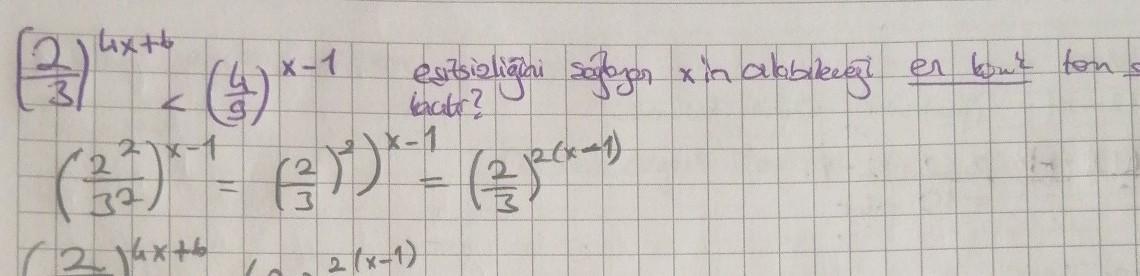 (2/3)^4x+6 < (4/9)^x-1 eşitsizliğini sağlayan x in alabileceği en küçük tam s
kaçtır?
(2^2/3^2)^x-1 = (2/3)^2)^x-1 = (2/3)^2(x-1)
(2)^4x+6 2(x-1)